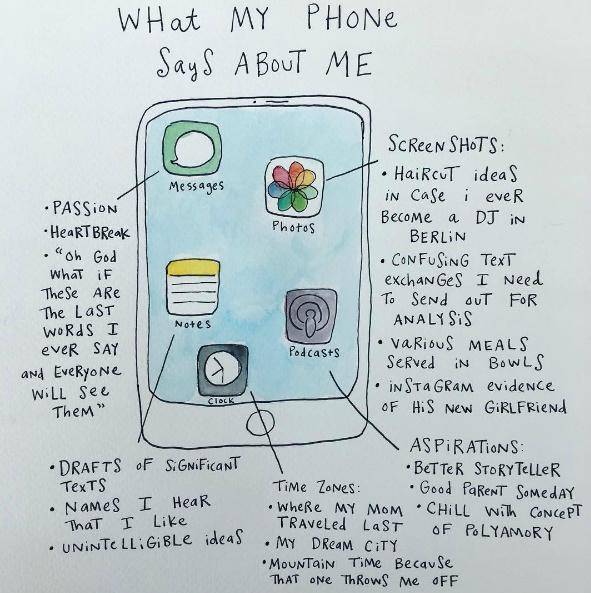 WHat MY PHONe
Says ABOUT ME
Messages
Photos
Notes
Podcasts
Clock
• PASSiON
• HeaRTBReak
• "Oh God
WHaT iF
THeSe ARe
THe LaST
WORdS I
eveR SAY
aNd EveRyoNe
WiLL See
THeM"
SCReeNSHOTS:
• HaiRCUT ideaS
iN CaSe i eveR
BeCoMe a DJ iN
BeRLiN
• CONFUSiNG TexT
exCHaNGeS I Need
To SeNd OUT FOR
ANALYSiS
• VaRiOUS MEALS
SeRVed iN BOWLS
• iNSTaGRaM evideNce
OF HiS New GiRLFRieNd
• DRAFTS OF SiGNiFiCANT
TexTS
• NaMeS I HeaR
THaT I Like
• UNiNTeLLiGiBLe ideaS
TiMe ZONeS:
• WHeRe MY MOM
TRaveLed LAST
• MY DReaM CiTY
• MOUNTaiN TiMe BecauSe
THaT ONe THROWS Me OFF
ASPiRATiONS:
• BeTTeR SToRYTeLLeR
• Good PaReNT SoMedAY
• CHiLL WiTH CoNCePT
OF PoLYAMORY